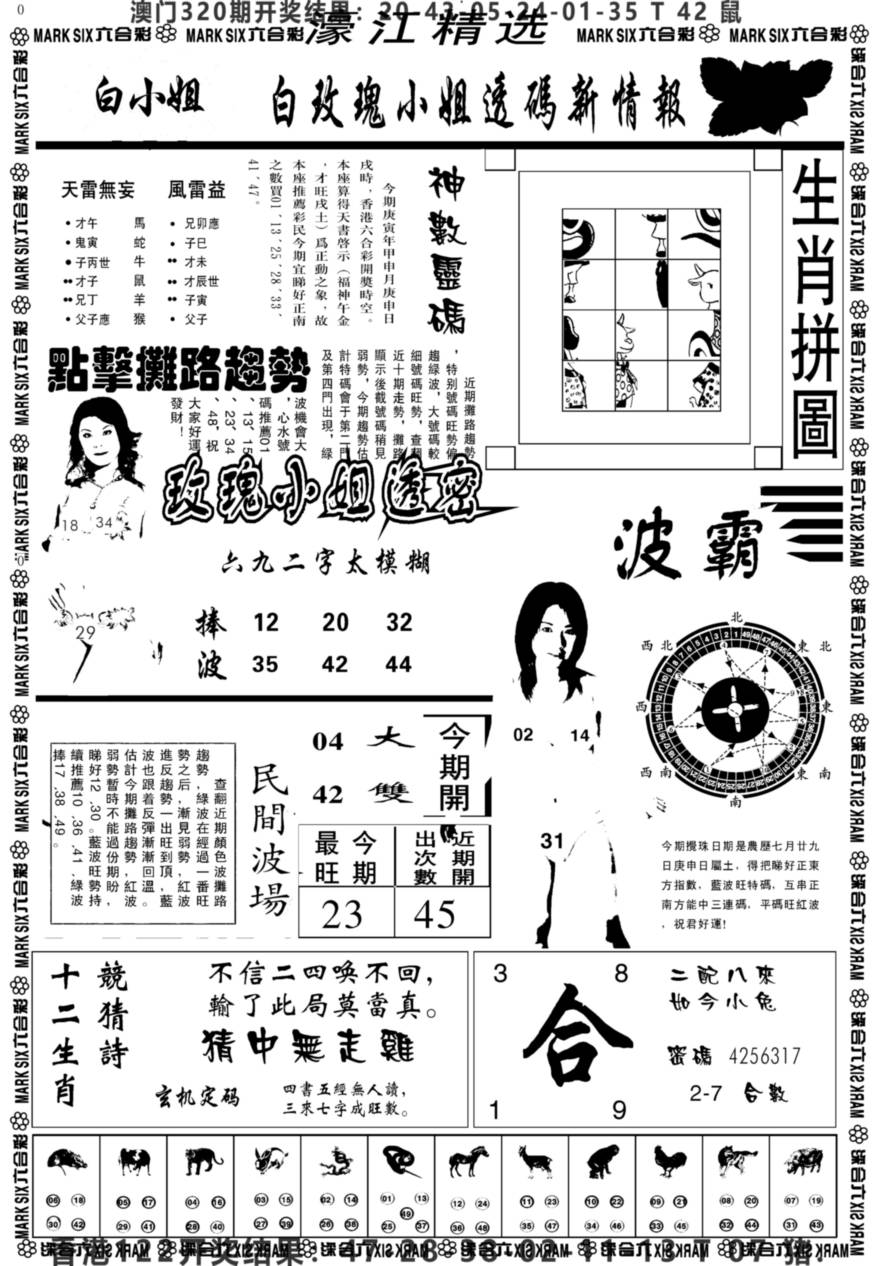 澳门320期开奖结果：20-42-05-24-01-35 T 42 鼠
MARK SIX六合彩 MARK SIX六合彩 濠江精选 MARK SIX六合彩 MARK SIX六合彩
白小姐 白玫瑰小姐透碼新情報
天雷無妄 風雷益
•才午 馬 •兄卯應
•鬼寅 蛇 •子巳
•子丙世 牛 •才未
••才子 鼠 ••才辰世
••兄丁 羊 ••子寅
•父子應 猴 •父子
神數靈碼
今期庚寅年甲申月庚申日
戌時，香港六合彩開獎時空。
本座算得天書啓示（福神午金
，才旺戌土）爲正動之象，故
本座推薦彩民今期宜睇好正南
之數買01、13、25、28、33、
41、47。
生肖拼圖
點擊攤路趨勢
近期攤路趨勢
，特别號碼旺勢偏
趨綠波，大號碼較
細號碼旺勢，查翻
近十期走勢，攤路
顯示後截號碼稍見
弱勢，今期趨勢估
計特碼會于第二門
及第四門出現，綠
波機會大
，心水號
碼推薦01
、13、15
、23、34
、48，祝
大家好運
發財！
玫瑰小姐透密
18 34
29
六九二字太模糊
捧 12 20 32
波 35 42 44
波霸
02 14
31
北
西北 東北
西 東
西南 東南
南
今期攪珠日期是農歷七月廿九
日庚申日屬土，得把睇好正東
方指數，藍波旺特碼，互串正
南方能中三連碼，平碼旺紅波
，祝君好運!
查翻近期顏色攤路
趨勢，綠波在經過一波旺
勢之后，漸見弱，紅番
進反趨勢一出旺勢，藍波
波也跟着反彈漸到頂，
估計今期攤路趨勢回温，
弱勢暫時不能過份盼紅波。
睇好12、30。藍波旺期，
續推薦10、36、41，綠波勢持，
捧17、38、49。
民間波場
04 大
42 雙
今期開
最旺 今期
23
出次數 近期開
45
十二生肖
競猜詩
不信二四唤不回，
輸了此局莫當真。
猜中無走雞
玄机定码
四書五經無人讀，
三來七字成旺數。
3 8
合
1 9
二配八來
如今小兔
密碼 4256317
2-7 合數
06 18 30 42
05 17 29 41
04 16 28 40
03 15 27 39
02 14 26 38
01 13 49 25 37
12 24 36 48
11 23 35 47
10 22 34 46
09 21 33 45
08 20 32 44
07 19 31 43
香港122开奖结果：47-28-38-02-11-13 T 07 猪